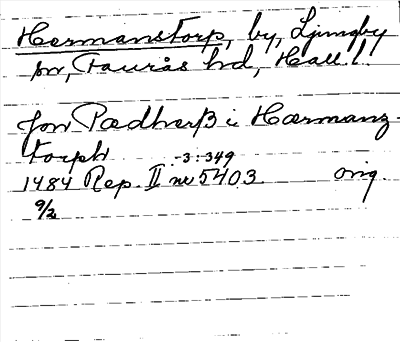 Hermanstorp, by, Ljungby
sn, Faurås hd, Hall. l.
Jon Pædherß i Hærmanz-
torph
-3:349
1484 Rep. II nr 5403 orig.
9/2